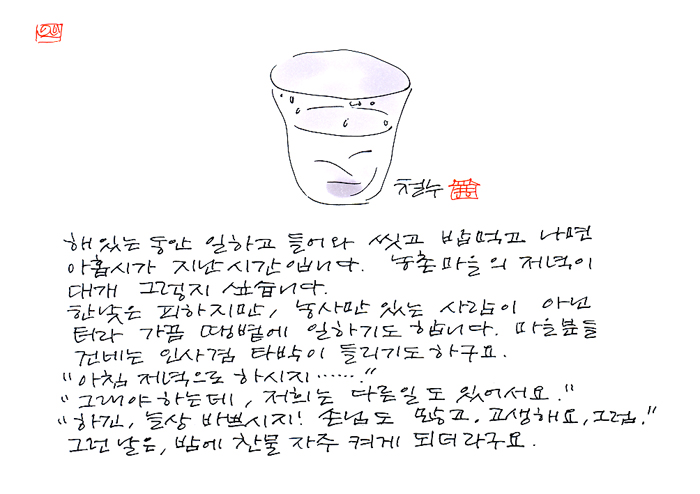 철수
해 있는 동안 일하고 들어와 씻고 밥먹고 나면
아홉시가 지난 시간입니다. 농촌마을의 저녁이
대개 그렇지 싶습니다.
한낮은 피하지만, 농사만 있는 사람이 아닌
터라 가끔 땡볕에 일하기도 합니다. 마을분들
건네는 인사겸 타박이 들리기도 하구요.
"아침 저녁으로 하시지……."
"그래야 하는데, 저희는 다른일도 있어서요."
"하긴, 늘상 바쁘시지! 손님도 많고. 고생해요, 그럼."
그런 날은, 밤에 찬물 자주 켜게 되더라구요.